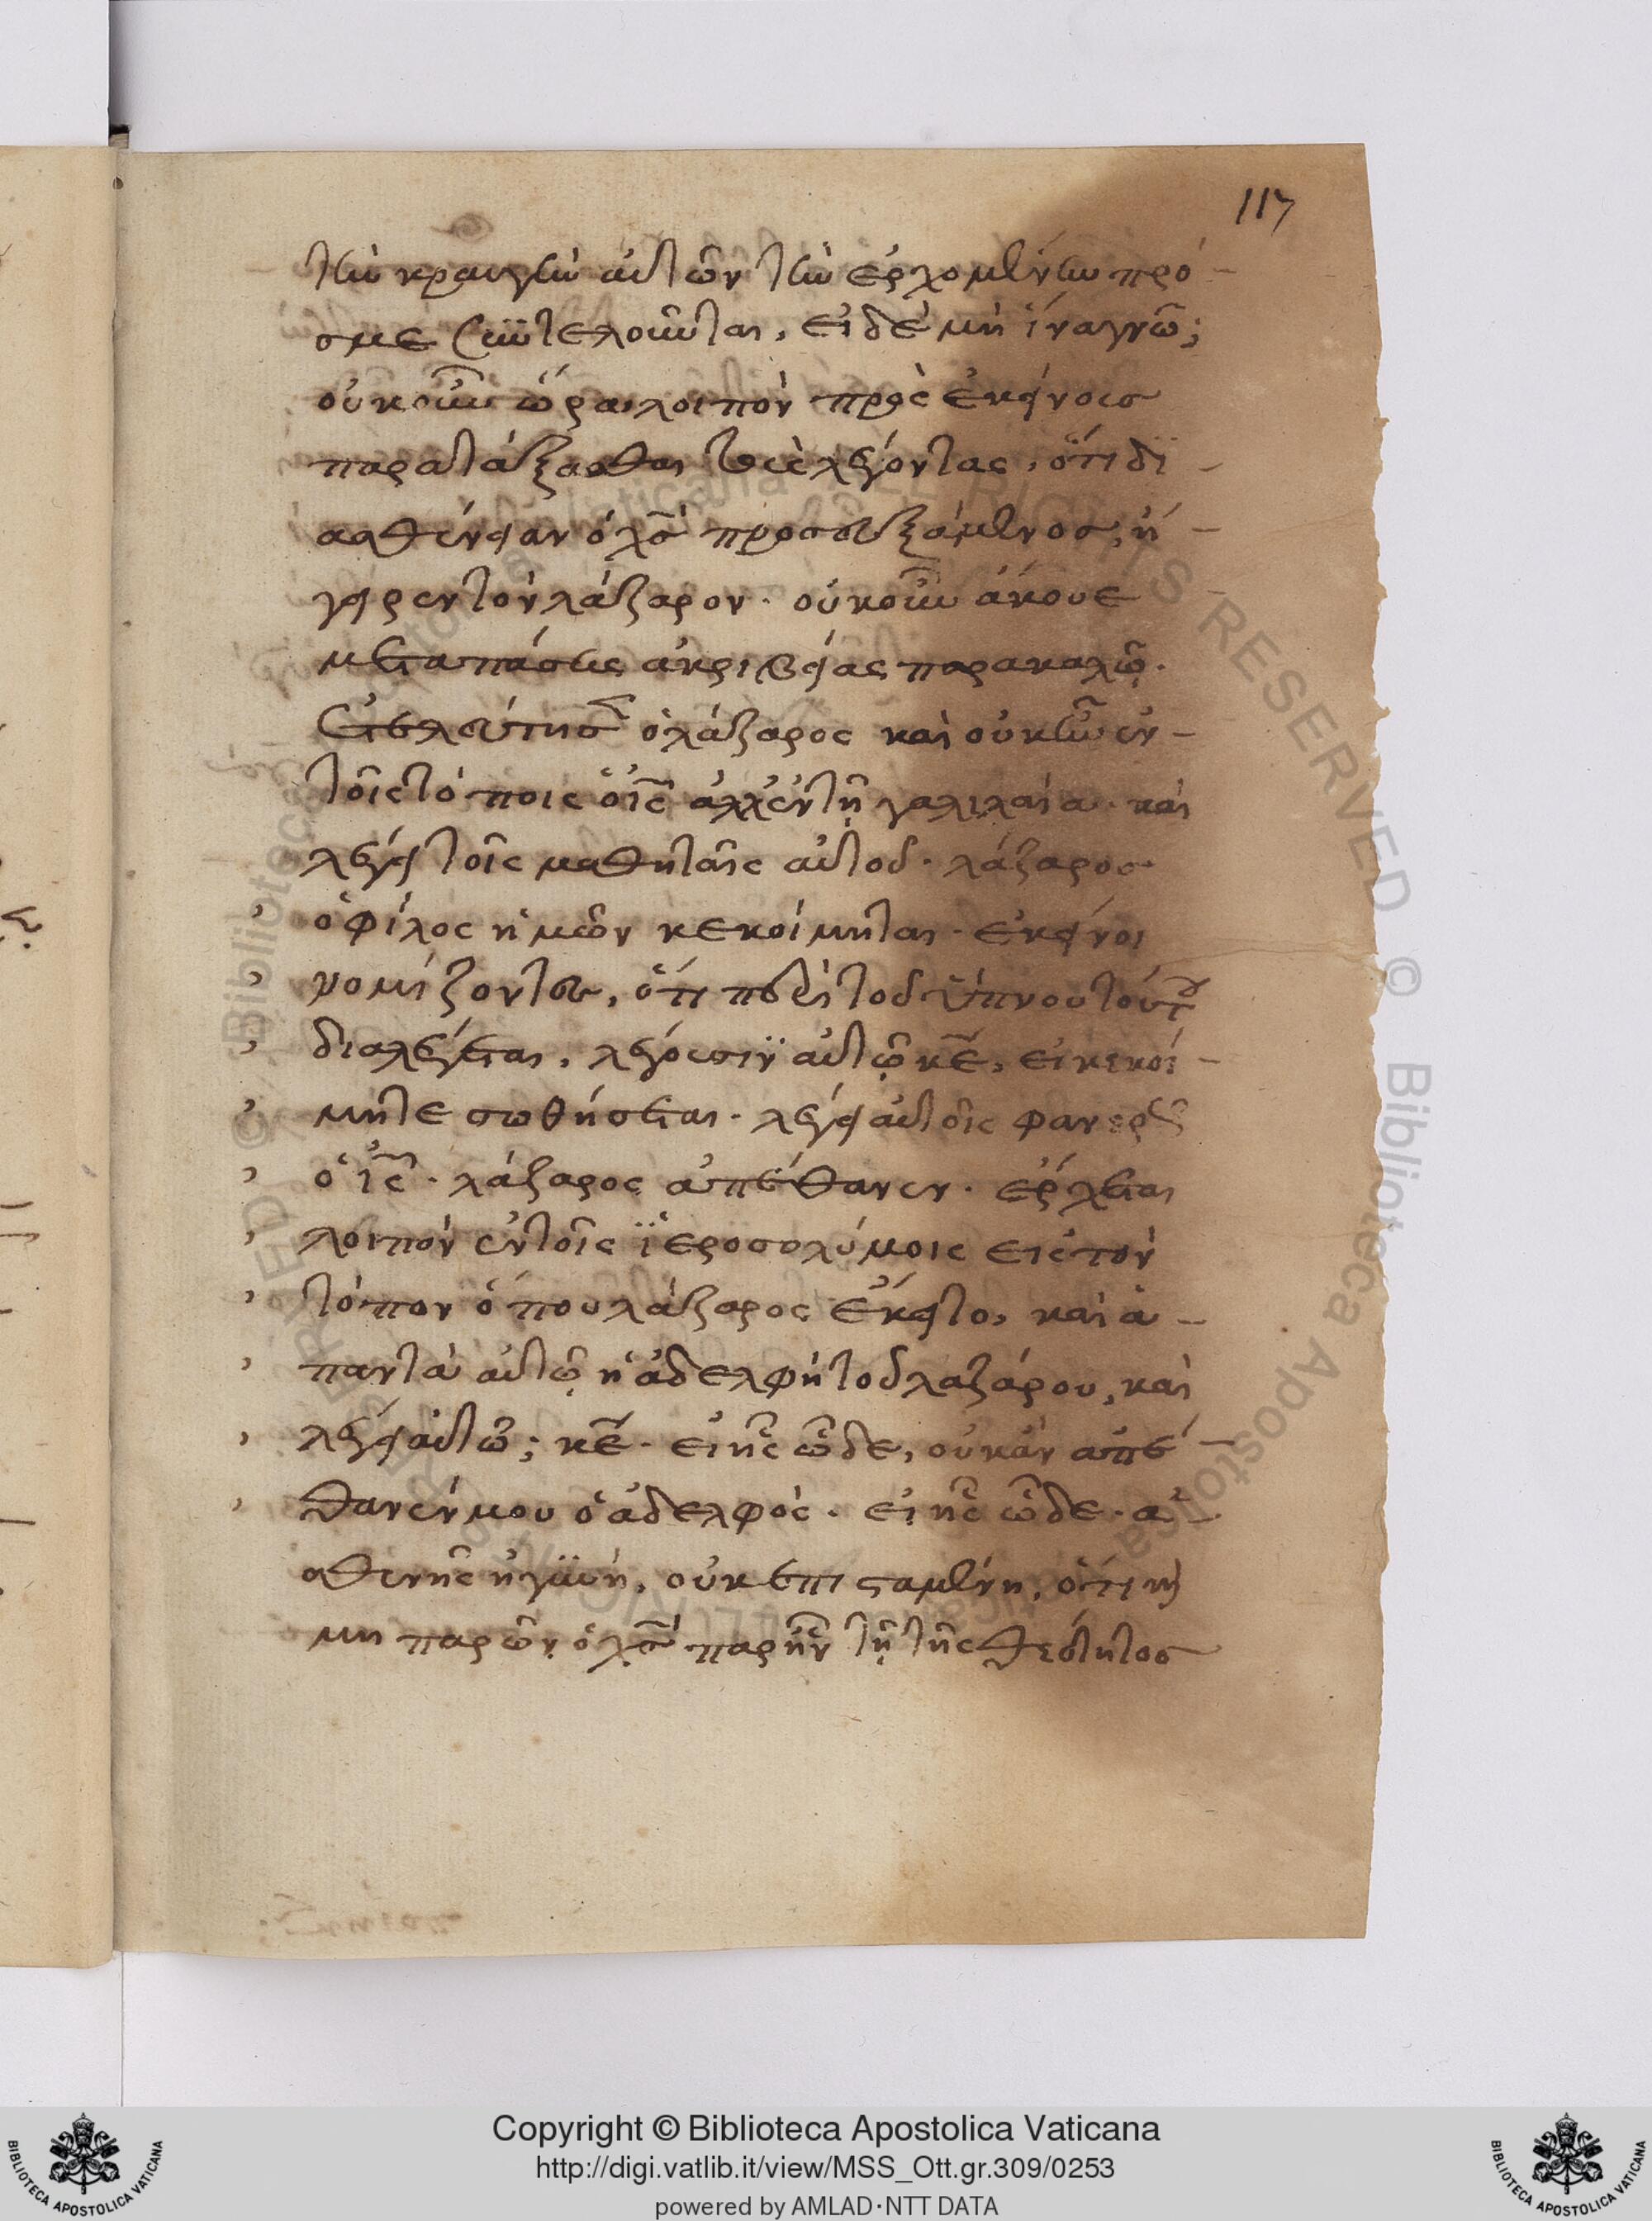 117
τὴν κραυγὴν αὐτῶν τὴν ἐρχομένην πρό-
σμε συντελοῦνται, εἰ δὲ μὴ ἵνα γνῶ;
οὐκοῦν ὥρα λοιπὸν πρὸς ἐκείνοις
παρατάξασθαι τοὺς λέγοντας, ὅτι δι-
ασθένειαν ὁ χς προσευξάμενος, ἤ-
γειρεν τὸν λάζαρον. οὐκοῦν ἄκουε
μετα πάσης ἀκριβείας παρακαλῶ.
Ἐτελεύτησεν ὁ λάζαρος καὶ οὐκ ἦν ἐν
τοῖς τόποις ὁ ις ἀλλ' ἐν τῇ γαλιλαία. καὶ
λέγει τοῖς μαθηταῖς αὐτοῦ. λάζαρος
ὁ φίλος ἡμῶν κεκοίμηται. ἐκεῖνοι
νομίζοντες, ὅτι περὶ τοῦ ὕπνου τούτου
διαλέγεται, λέγουσιν αὐτῷ κε, εἰ κεκοί-
μητε σωθήσεται. λέγει αὐτοῖς φανερῶς
ὁ ις. λάζαρος ἀπέθανεν. ἔρχεται
λοιπὸν ἐν τοῖς ἱεροσολύμοις εἰς τὸν
τόπον ὅπου λάζαρος ἔκειτο, καὶ ἀ-
παντὰ αὐτῷ ἡ ἀδελφὴ τοῦ λαζάρου, καὶ
λέγει αὐτῶ; κε. εἰ ἦς ὧδε, οὐκ ἂν ἀπέ-
θανέν μου ὁ ἀδελφὸς. εἰ ἦς ὧδε. ἀ-
σθενῆς ἡ γυνή, οὐκ ἐπισταμένη, ὅτι καὶ
μη παρῶν ὁ χς παρῆν τῇ τῆς θεότητος
Copyright © Biblioteca Apostolica Vaticana
http://digi.vatlib.it/view/MSS_Ott.gr.309/0253
powered by AMLAD·NTT DATA
BIBLIOTECA APOSTOLICA VATICANA
BIBLIOTECA APOSTOLICA VATICANA